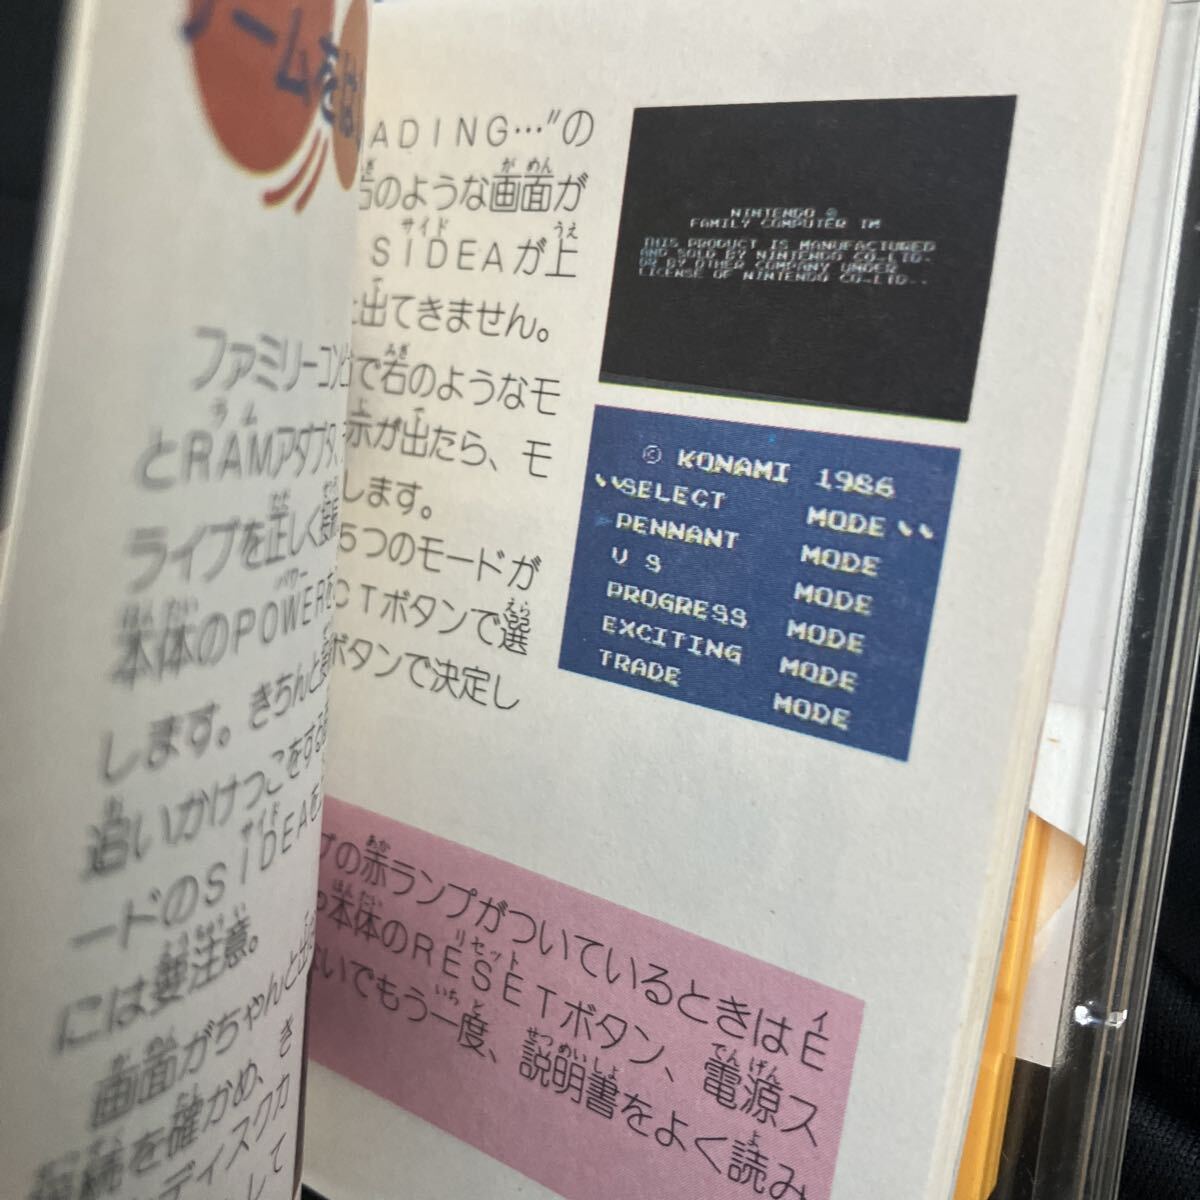 ゲームをは
ファミリーコン
とRAMアダプタ
ライブを正しく
本体のPOWERを
します。きちんと
追いかけっこをする
ードのSIDEAを
には要注意。
画面がちゃんと出
続を確かめ、き
ディスクカ
して
ADING…”の
右のような画面が
SIDEAが上
出てきません。
で右のようなモ
示が出たら、モ
します。
5つのモードが
CTボタンで選
ボタンで決定し
NINTENDO ©
FAMILY COMPUTER TM
THIS PRODUCT IS MANUFACTURED
AND SOLD BY NINTENDO CO.,LTD.
OR BY OTHER COMPANY UNDER
LICENSE OF NINTENDO CO.,LTD..
© KONAMI 1986
SELECT MODE
PENNANT MODE
VS MODE
PROGRESS MODE
EXCITING MODE
TRADE MODE
ブの赤ランプがついているときはE
本体のRESETボタン、電源ス
いでもう一度、説明書をよく読み